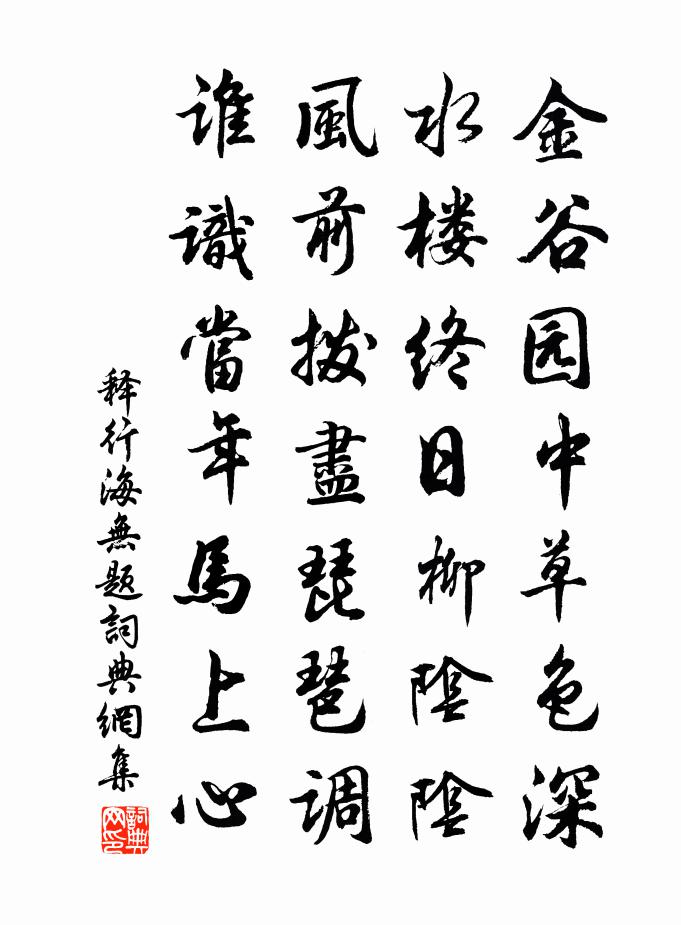 金谷园中草色深
水楼终日柳陰陰
風前拨盡琵琶調
誰識當年馬上心
释行海無题詞典網集
詞典
网印